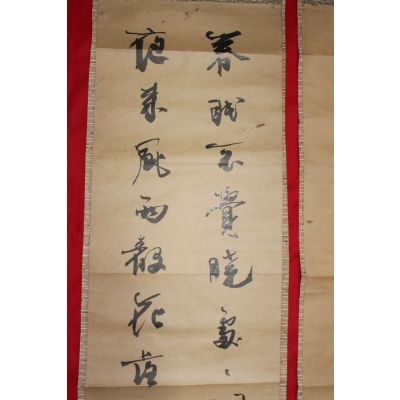 春眠不覺曉處〻
夜來風雨聲花落